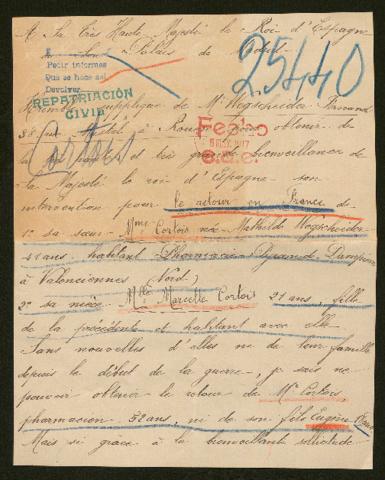 A Sa Très Haute Majesté le Roi d'Espagne
Palais de Madrid
Pedir informes
Que se hace así
Devolver
25440
REPATRIACIÓN
CIVIL
Humble supplique de Mr Wegscheider Armand
à Rouen pour obtenir de
la et très grande bienveillance de
Sa Majesté le roi d'Espagne son
intervention pour le retour en France de
1º sa sœur Mme Cortois née Mathilde Wegscheider
41 ans habitant Pharmacie Dampierre
à Valenciennes (Nord)
2º sa nièce Mlle Marcelle Cortois 21 ans, fille
de la précédente et habitant avec elle
Sans nouvelles d'elles ni de leur famille
depuis le début de la guerre, je sais ne
pouvoir obtenir le retour de Mr Cortois
pharmacien 52 ans, ni de son fils Eugène
Mais si grâce à la bienveillante sollicitude